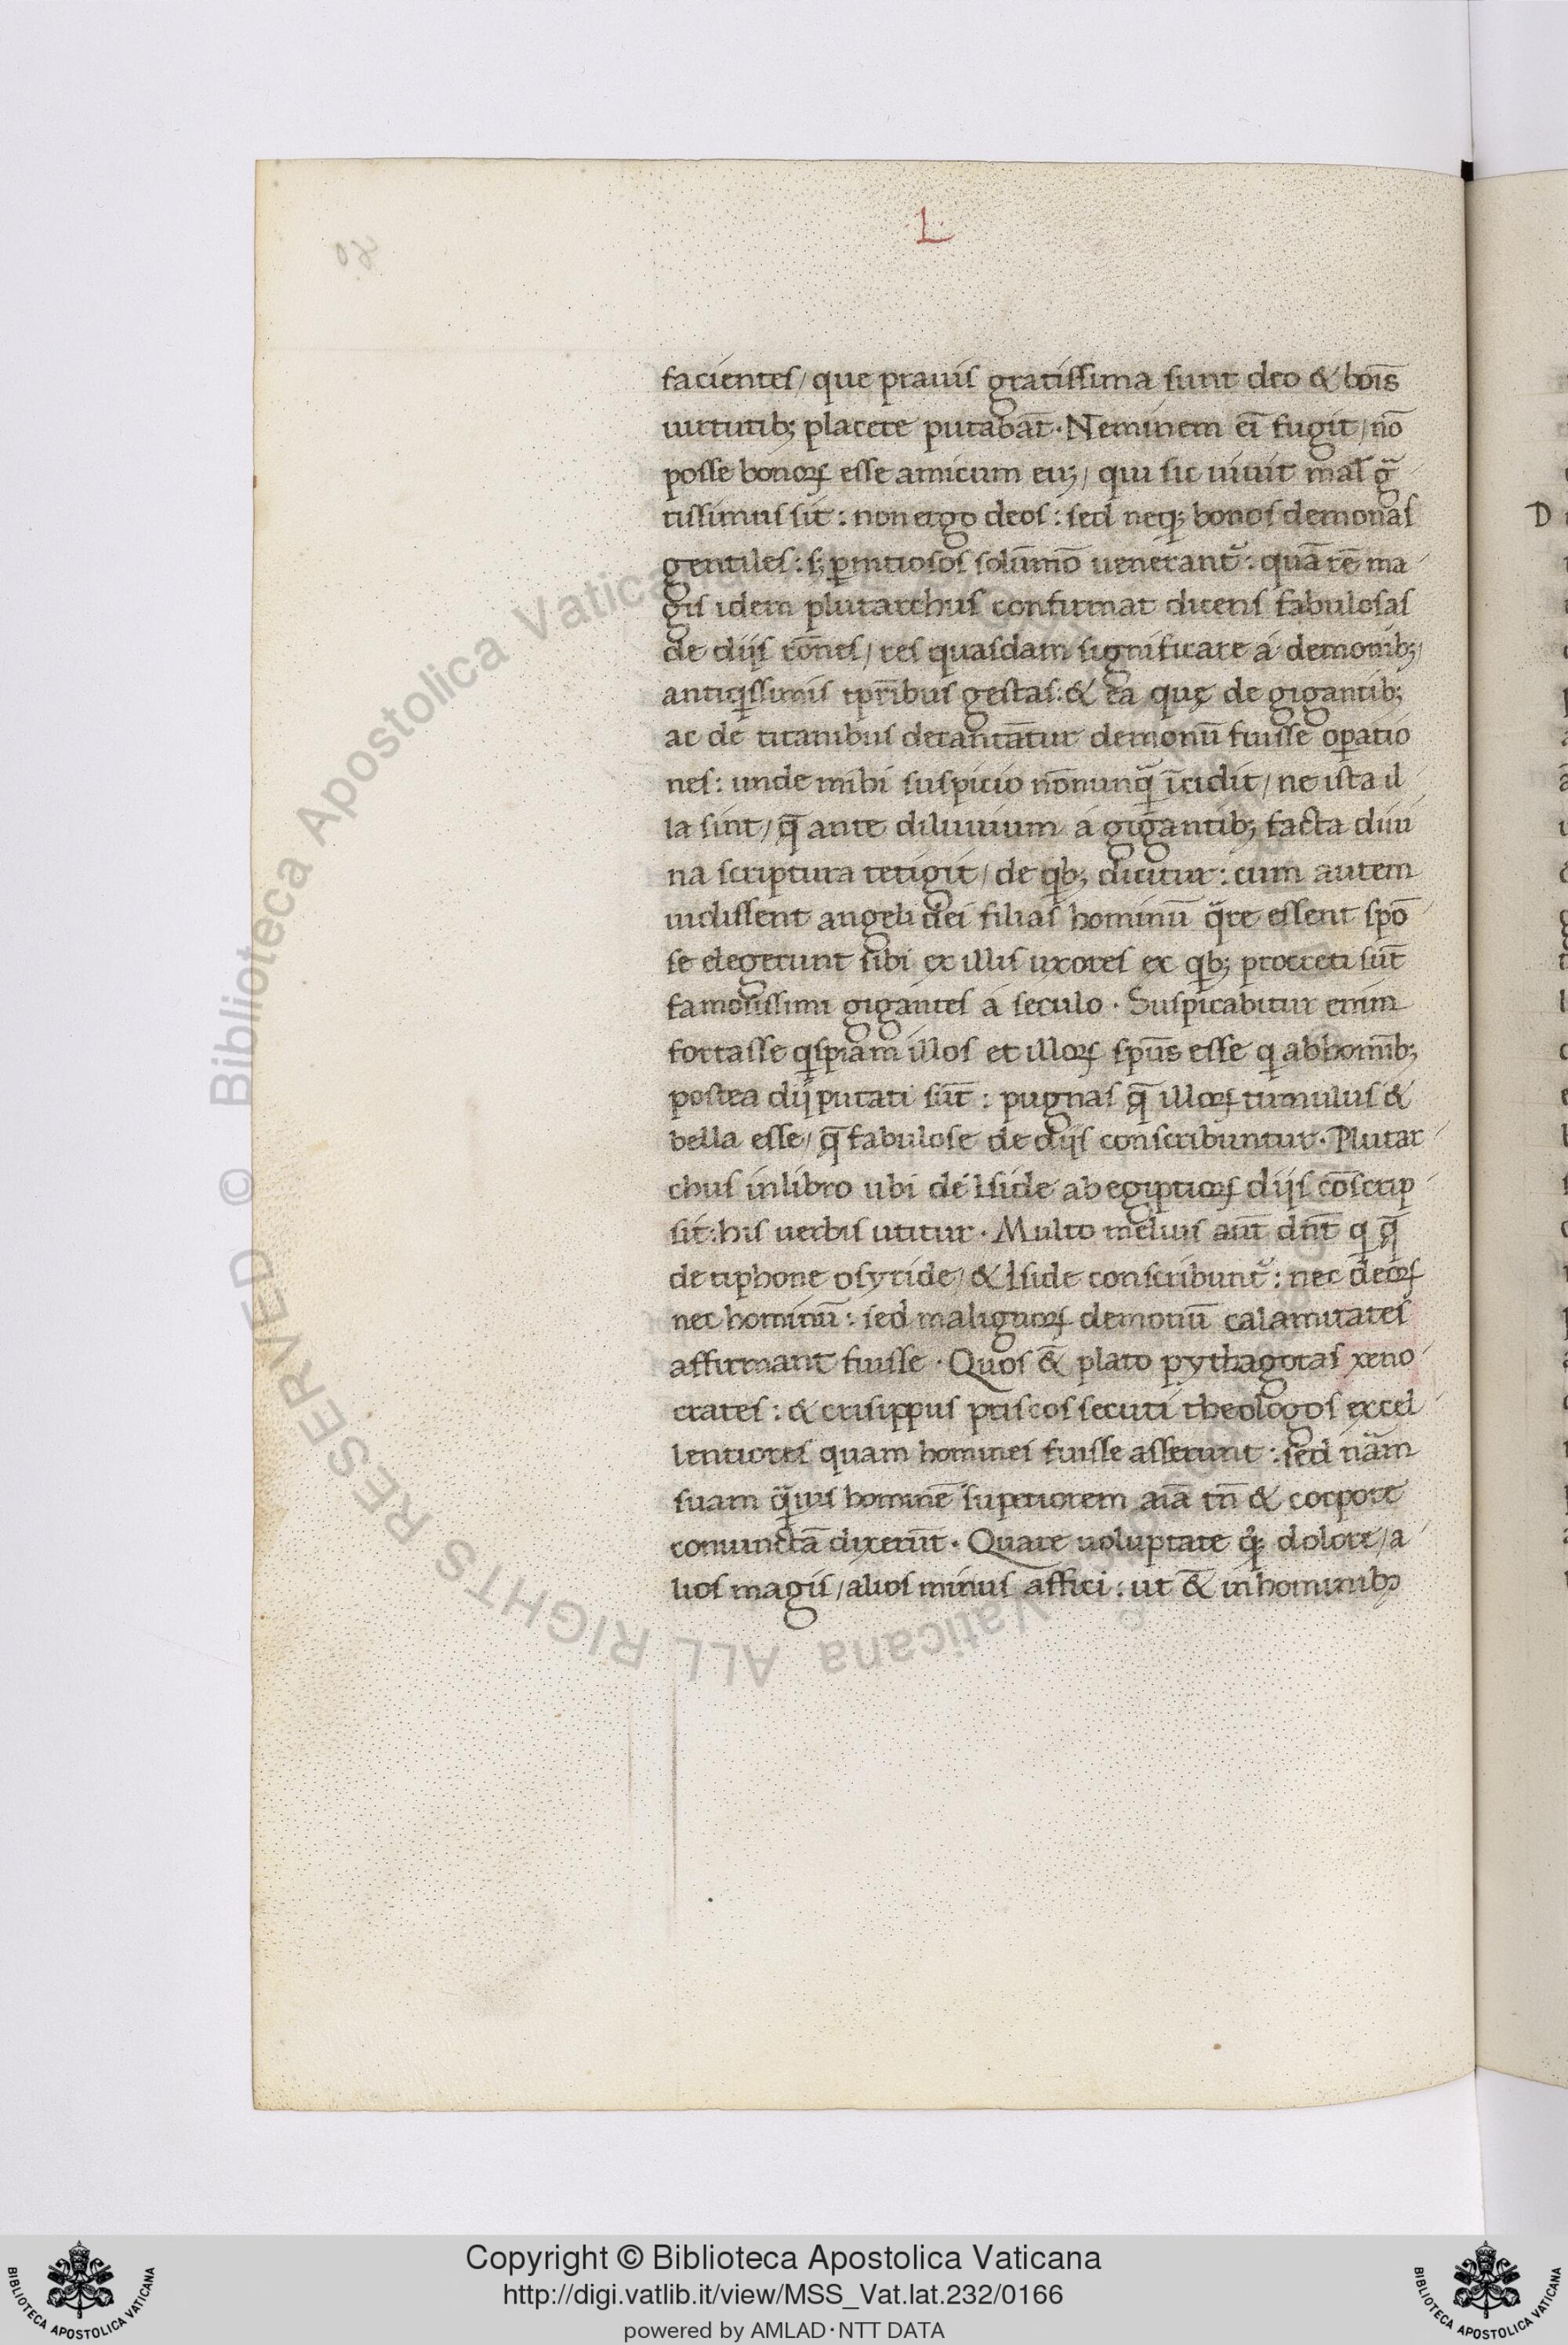 L
facientes/ que prauis gratissima sunt deo & boīs
uirtutib; placere putabāt. Neminem ei̅ fugit/ nō
posse bonoꝝ esse amicum eiꝰ/ qui sic uiuit mal̄ gͣ
tissimus sit: non ergo deos: sed neqꝫ bonos demonas
gentiles: sꝫ ꝑnitiosos solūmō uenerant᷑: quā rē ma
gis idem plutarchus confirmat dicens fabulosas
de dijs rōnes/ res quasdam significare á demonib;/
antiqͥssimis tp̄ribus gestas: & ea quę de gigantib;
ac de titanibus decantātur demonū fuisse oꝑatio
nes: unde mihi suspicio nōnunqͣ̄ ĩcidit/ ne ista il
la sint/ q̄ ante diluuium á gigantib; facta diui
na scriptura tetigit/ de qͥb; dicitur: cum autem
uidissent angeli dei filias hominū qͣre essent spō
se elegerunt sibi ex illis uxores ex qͥb; procreti sūt
famosissimi gigantes á seculo. Suspicabitur enim
fortasse qͥspiam illos et illoꝝ sp̄us esse qͥ ab homīb;
postea dij putati sūt: pugnas q̄ illoꝝ tumulus &
bella esse/ q̄ fabulose de dijs conscribuntur. Plutar
chus in libro ubi dé Iside ab egiptioꝝ dijs cōscrip
sit: his uerbis utitur. Multo melius aūt dn̄t qͥ q̄
de tiphone osyride/ & Iside conscribunt᷑: nec deoꝝ
nec hominū: sed malignoꝝ demonū calamitates
affirmant fuisse. Quos &̄ plato pythagoras xeno
crates: & crisippus priscos secuti theologos excel
lentiores quam homines fuisse asserunt: sed nām
suam qͣuis hominē superiorem aīa tn̄ & corpore
coniunctā dixerūt. Quare uoluptate qͦꝫ dolore/ a
lios magis/ alios minus affici: ut &̄ in hominibꝰ
D
Copyright © Biblioteca Apostolica Vaticana
http://digi.vatlib.it/view/MSS_Vat.lat.232/0166
powered by AMLAD·NTT DATA
BIBLIOTECA APOSTOLICA VATICANA
BIBLIOTECA APOSTOLICA VATICANA
© Biblioteca Apostolica Vaticana
ALL RIGHTS RESERVED